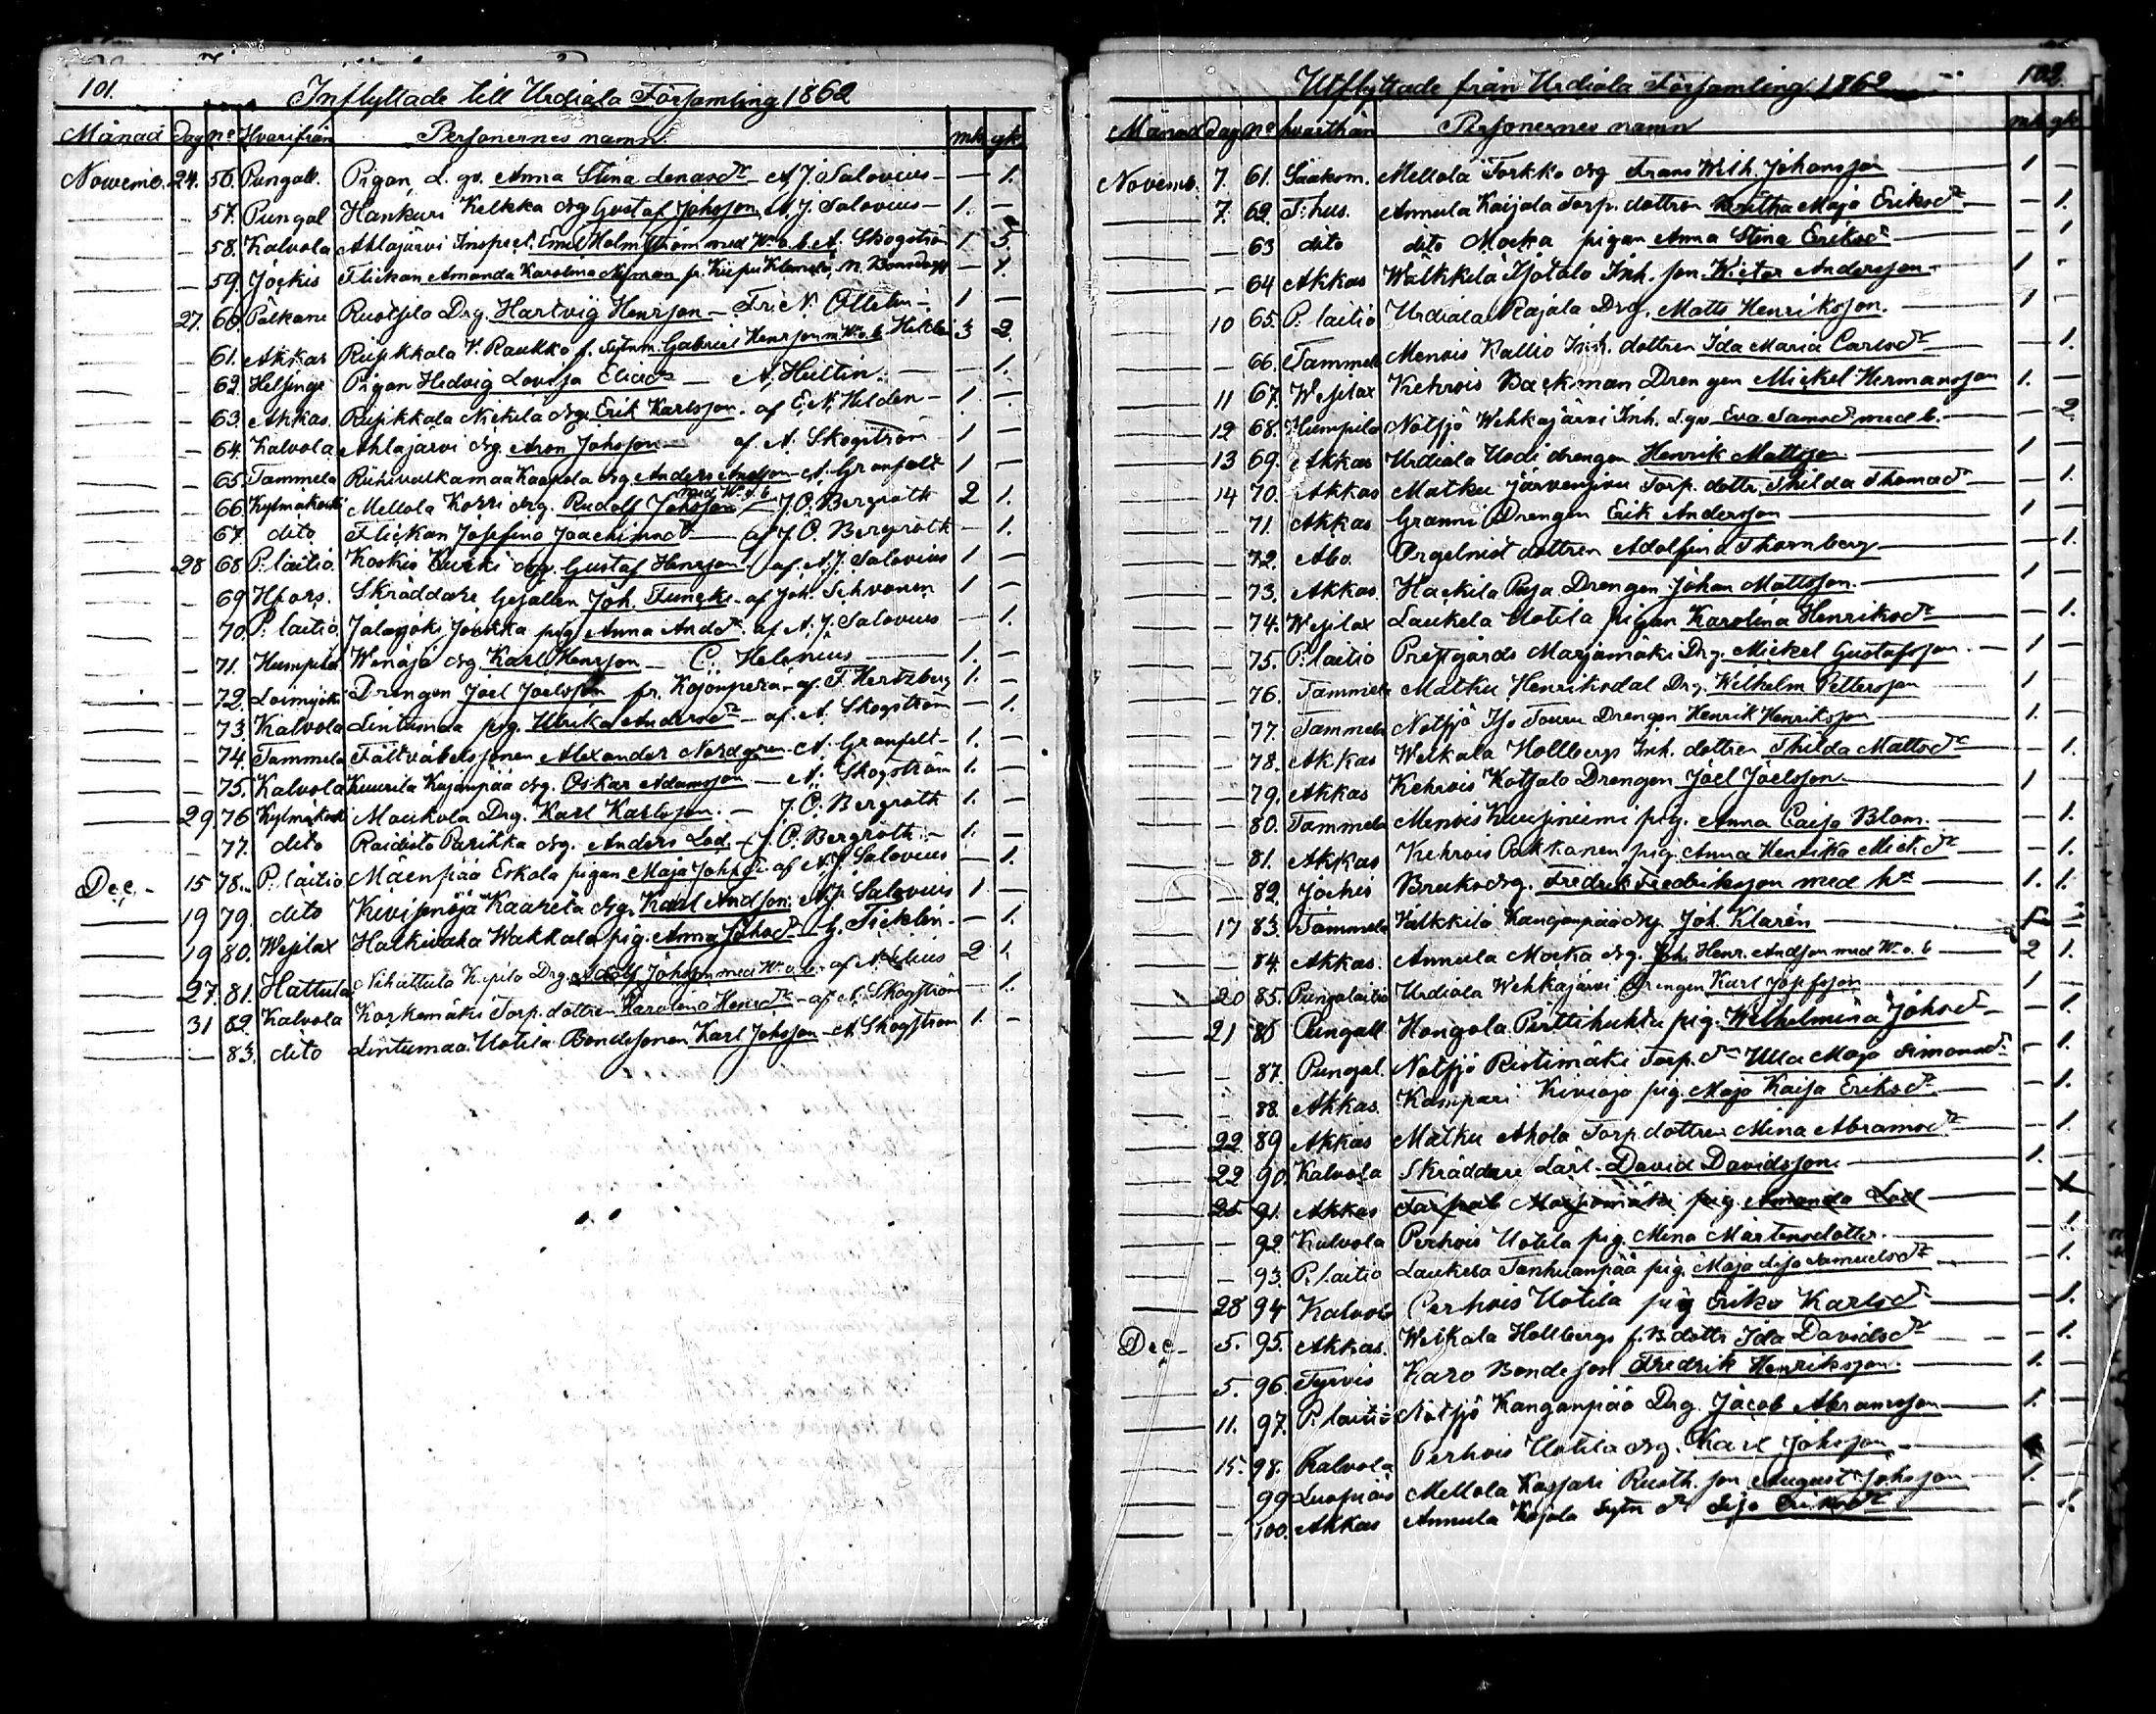 101.
Inflyttade till Urdiala Församling 1862
Månad Dag no Hvarifrån Personernes namn. mk. qk.
Novemb. 24. 56. Pungall. Pigan L. qv. Anna Stina Lenasdr A. J. Salovius — — 1.
— 57. Pungal Hankuri Kelkka drg Gustaf Johsson A. J. Salovius — 1. —
— 58. Kalvola Ahlajärvi Inspect. Emil Holmström med Hu o. b. A. Skogström 1 3.
— 59. Jockis Flickan Amanda Karolina Nyman fr. N. Bonsdorff — 1
27. 60. Pälkäne Rustjila Drg. Hartvig Henrsson — 1 —
— 61. Akkas Riipikkala V. Raukko f. Sytnm. Gabriel Henrsson m Hu o. b. 3 2.
— 62. Helsinge Pigan Hedvig Lovisa Eliasdr — A. Heltin. — — 1.
— 63. Akkas. Riipikkala Nickila drg. Erik Karlsson. af E. N. Hilden — 1. —
— 64. Kalvola Ahlajärvi drg. Aron Johsson — af A. Skogström 1 —
— 65. Tammela Riihivalkamaa Kaakola drg Anders Andsson — A. Granfelt 1 —
— 66. Kylmäkoski Mellola Korri drg. Rudolf Johsson med Hu o. b. — J. C. Bergroth 2 1.
— 67. dito Flickan Josefina Joachimsdr — af J. C. Bergroth — 1.
28 68 P:laitio Koskis Kurki drg. Gustaf Henrsson af A. J. Salovius 1 —
— 69 Hfors. Skräddare Gesällen Joh. Funcke af Joh. Schvanen 1 —
— 70. P:laitio Jalanjoki Jockka pig Anna Andsdr. af A. J. Salovius — 1.
— 71. Humpila Venäjä drg Karl Henrsson — C. Helenius — 1. —
— 72. Loimijoki Drengen Joel Joelsson fr. Kojonperä — af F. Hertzberg 1. —
— 73. Kalvola Lintumaa pig. Ulrika Andersdr — af A. Skogström — 1.
— 74. Tammela Fältväbelssonen Alexander Nordgren A. Granfelt — 1. —
— 75. Kalvola Kuurila Kajanpää drg. Oskar Adamsson — A. Skogström 1. —
29. 76 Kylmäkoski Maukola Drg. Karl Karlsson. — J. C. Bergroth 1. —
— 77. dito Raidisto Parikka drg. Anders Lod. — J. C. Bergroth. — 1. —
Dec. — 15 78. P:laitio Mäenpää Eskola pigan Maja Johsdr. af A. J. Salovius — 1.
19 79. dito Kivisenoja Kaareta drg. Karl Andsson. A. J. Salovius 1 —
19 80. Wesilax Halkivaha Wakkala pig. Anna Johsdr — G. Ticklén — — 1.
27. 81. Hattula Nihattula Kipilo Drg. Adolf Johsson med Hu o. b. 2 1.
31 82. Kalvola Korkemäki Torp. dottren Karolina Henrsdr — af A. Skogström — 1.
— 83. dito Lintumaa Uotila Bondesonen Karl Johsson — A. Skogström 1. —
102.
Utflyttade från Urdiala Församling 1862
Månad Dag no hvarthän Personernes namn mk qk
Novemb. 7. 61. Saakom. Mellola Torkko drg Frans Wilh. Johansson — 1 —
7. 62. T:hus. Annula Kaijala Torp. dottren Kritha Maja Eriksdr — 1.
— 63 dito dito Mocka pigan Anna Stina Eriksdr — 1
— 64 Akkas Wälkkilä Isotalo Inh. son Victor Andersson — 1 —
10 65. P:laitio Urdiala Rajala Drg. Matts Henriksson. — 1 —
— 66. Tammela Menois Kallio Inh. dottren Ida Maria Carlsdr — 1.
11 67. Wesilax Kehrois Backman Drengen Mickel Hermansson 1. —
12 68. Humpila Notsjö Wehkajärvi Inh. L. qv. Eva Samsdr med b. — 2
13 69. Akkas Urdiala Uodi drengen Henrik Mattsson — 1 —
14 70. Akkas Matku Järvensivu Torp. dottr. Thilda Thomasdr — 1.
— 71. Akkas Granni Drengen Erik Andersson — 1 —
— 72. Åbo. Orgelnist dottren Adolfina Thornberg — 1.
— 73. Akkas. Hackila Drengen Johan Mattsson. — 1 —
— 74. Wesilax Laukela Uotila pigan Karolina Henriksdr — 1.
— 75. P:laitio Prestgårds Marjamäki Drg. Mickel Gustafsson. — 1 —
— 76. Tammela Matku Henriksdal Drg. Wilhelm Pettersson 1 —
— 77. Tammela Notsjö Iso Touru Drengen Henrik Henriksson — 1. —
— 78. Akkas Welkala Hollbergs Inh. dottren Thilda Mattsdr — 1.
— 79. Akkas Kehrois Kotsalo Drengen Joel Joelsson — 1 —
— 80. Tammela Menois Kuusiniemi pig. Anna Caisa Blom. — 1.
— 81. Akkas Kehrois Pakkanen pig. Anna Henrika Mickdr — 1.
— 82. Jockis Bruksdrg. Fredrik Fredriksson med hu 1. 1.
17 83. Tammela Välkkilä Kanganpää drg Joh. Klarén — 1 —
— 84. Akkas. Annula Mocka drg. Joh. Henr. Andsson med Hu o. b — 2 1.
20 85. Pungalaitio Urdiala Wehkajärvi Drengen Karl Josefsson — 1 —
21 86 Pungall Hongola Perttihuhta pig. Wilhelmina Johsdr — 1.
— 87. Pungal. Notsjö Ristimäki Torp. dr Ulla Maja Simonsdr — 1.
— 88. Akkas. Kampari Kiviojo pig. Maja Kaisa Eriksdr — 1.
22. 89 Akkas Matku Ahola Torp. dottren Mina Abramsdr — 1.
22 90. Kalvola Skräddare Lärl. David Davidsson. — 1. —
25 91. Akkas Marjamäki pig. Amanda Lod — 1
— 92. Kalvola Perhois Uotila pig. Mina Mårtensdotter. — 1
— 93. P:laitio Laukela Tanhuanpää pig. Maja Lisa Samuelsdr — 1.
28 94 Kalvola Perhois Uotila pig Erika Karlsdr — 1.
Dec. 5. 95. Akkas. Welkala Hollbergs f. B. dottr Ida Davidsdr — 1.
5. 96. Tyrvis Karo Bondeson Fredrik Henriksson. — 1. —
11. 97. P:laitio Notsjö Kanganpää Drg. Jacob Abramsson — 1. —
15. 98. Kalvola Perhois Uotila drg. Karl Johsson — —
— 99 Luopiois Mellola Kaspari Rusth. son August Johsson 1. —
— 100. Akkas Annula Kajala Sytn dr Lisa Eriksdr — 1.